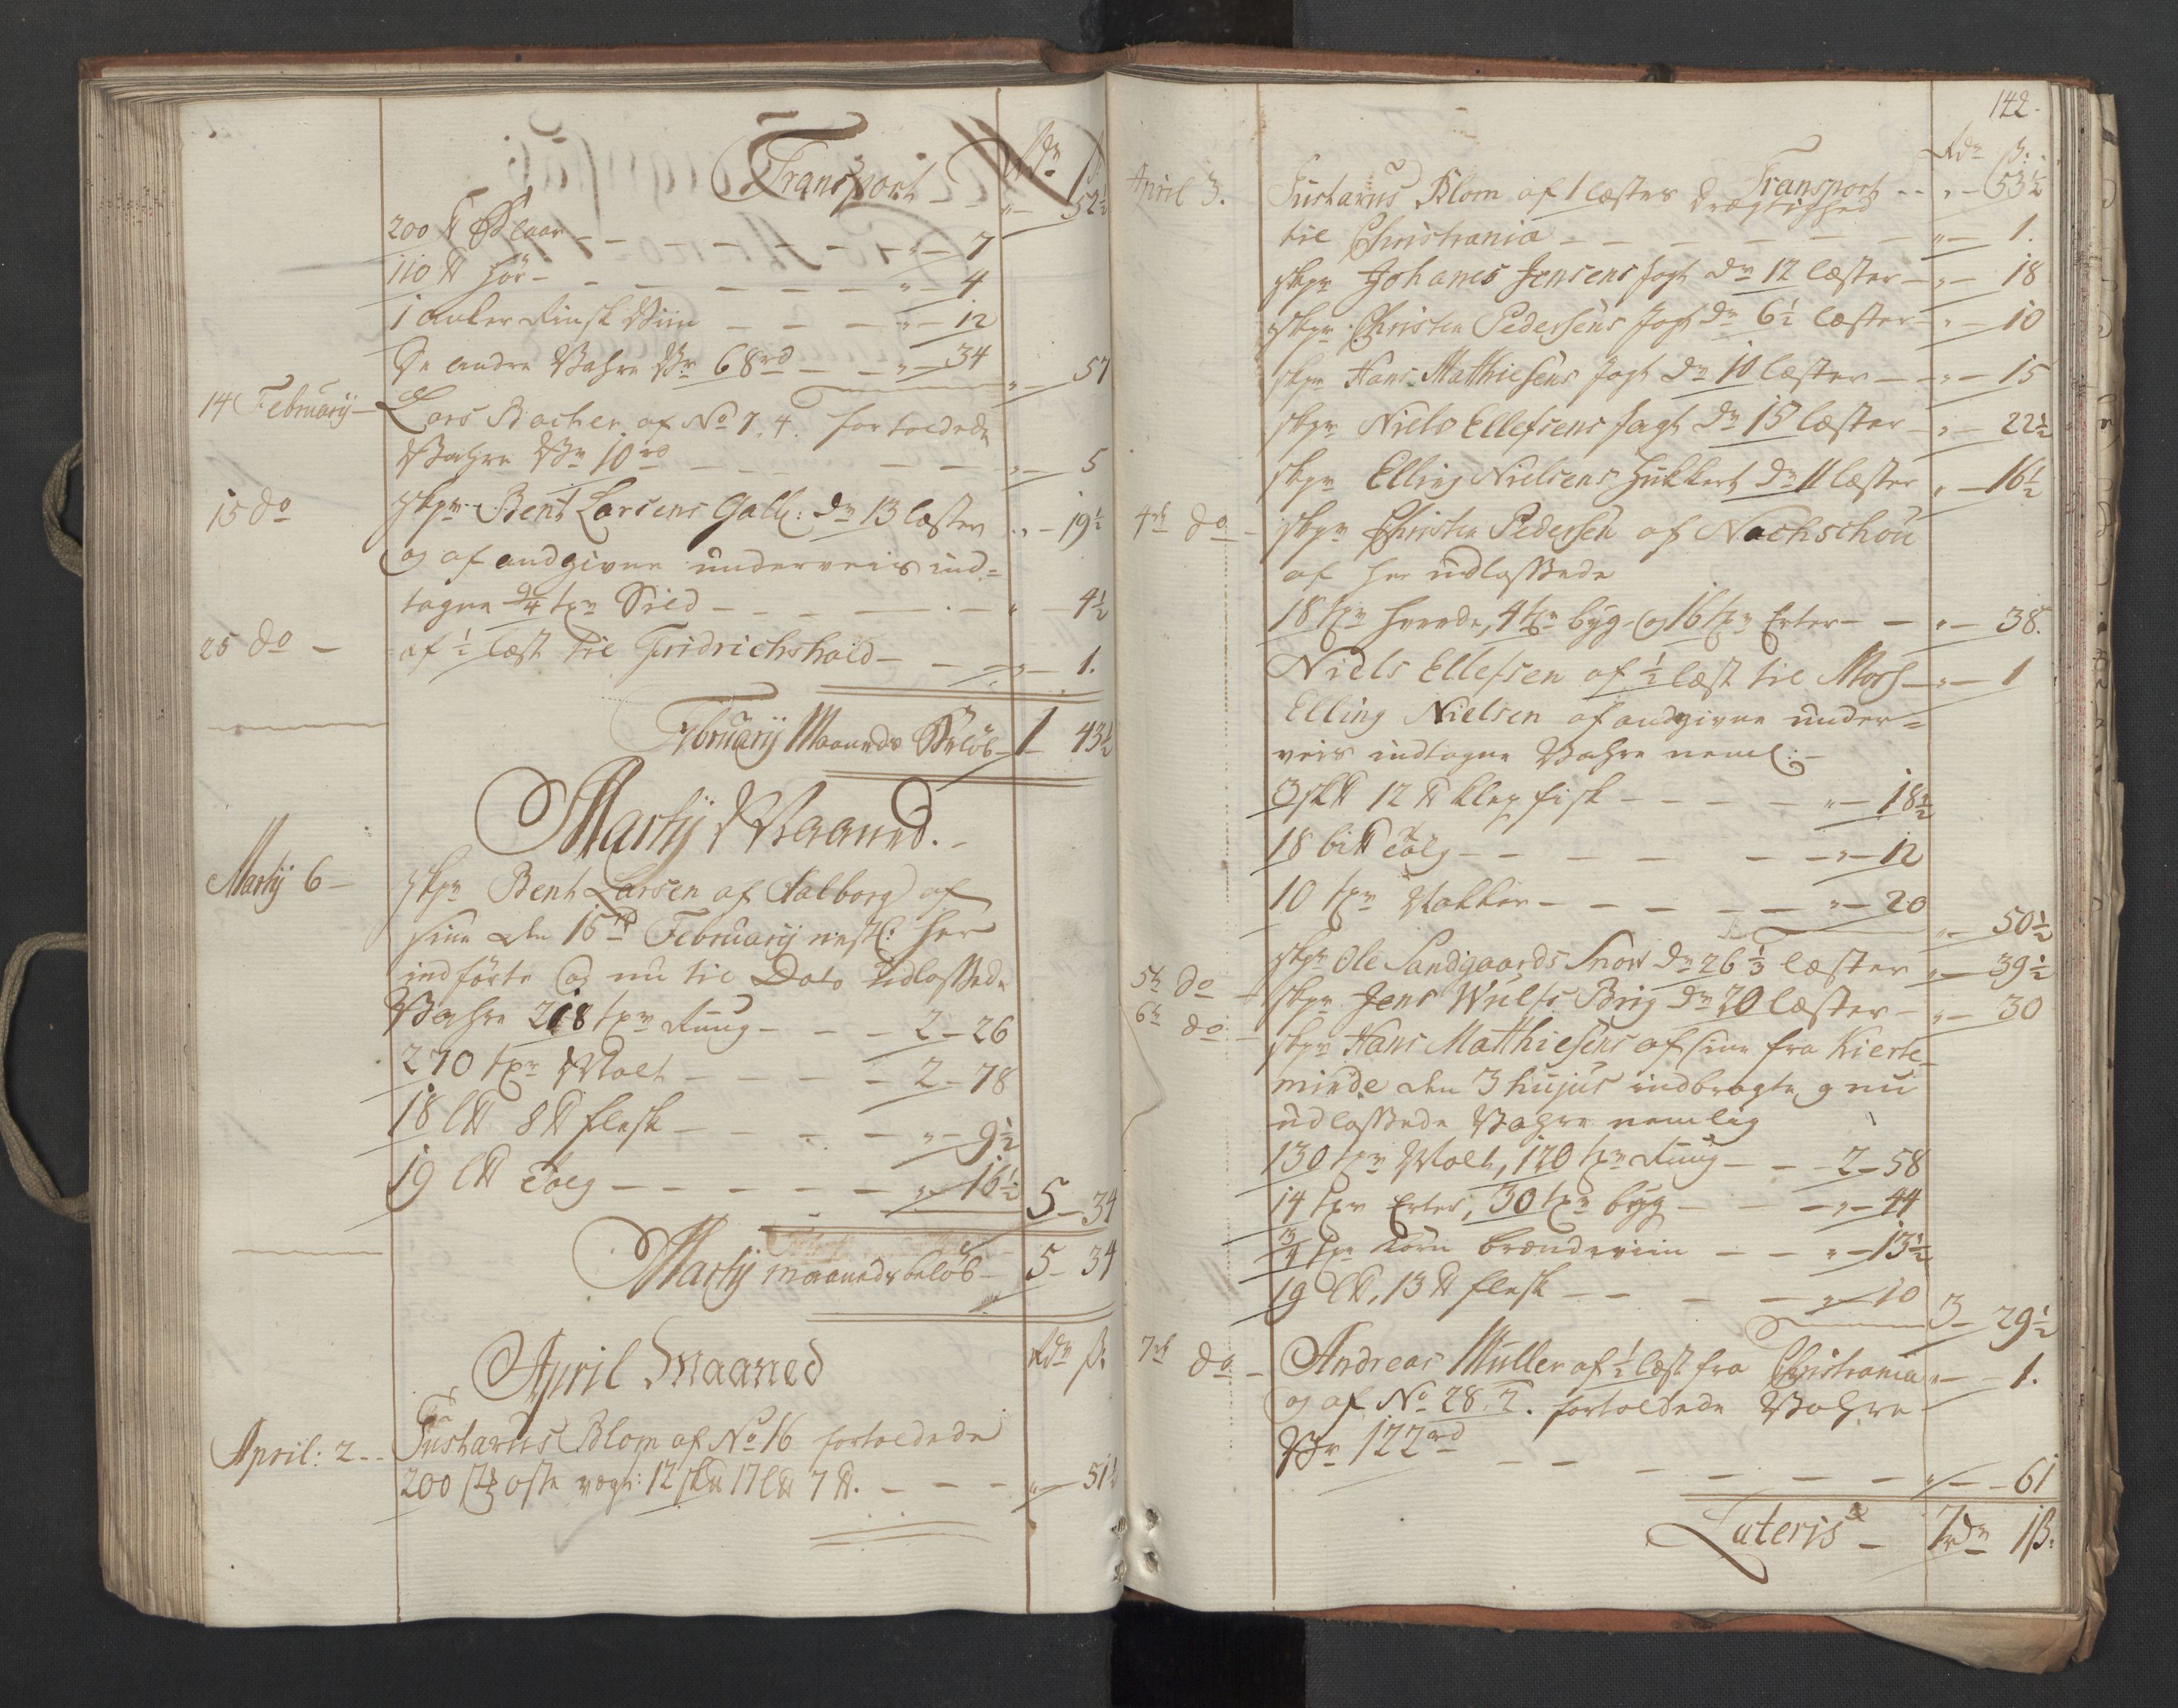 Transport - „ - 52½
Rdr ß
200 ℔ Blaar - - - „ - 7
110 ℔ Hør - - - „ - 4
1 Anker Rinsk Viin - - - „ - 12
De andre Vahre Vr 68 rd - - „ - 34 „ - 57
14 Februarij - Lars Bacher af No 7. 4. fortoldede
Vahre Vr 10 rd - - - „ - 5
15 do skpr Bent Larsens Gall: dr 13 læster „ - 19½
og af andgivne underveis ind=
tagne 9/4 tr Sild - - - „ - 4½
25 do - af ½ læst til Fridrichshald - - „ - 1.
Februarij Maaneds Beløb - 1 43½
Martij Maaned.
Martij 6 - skpr Bent Larsen af Aalborg af
sine den 15de Februarij næstl: her
indførte og nu til Dato udlossede
Vahre 218 tr Rug - - - 2 - 26
270 tr Malt - - - 2 - 78
18 L℔ 8 ℔ flesk - - - „ - 9½
19 L℔ Talg - - - „ - 16½ 5 - 34
Martij maaneds beløb - 5 - 34
April Maaned
Rdr ß
April: 2 - - Gustavus Blom af No 16 fortoldede
200 st oste vegt: 12 sk℔ 17 L℔ 7 ℔. - - - „ - 51½
142.
Rdr ß:
Transport - - „ - 53½
April 3. Gustavus Blom af 1 læsters Drægtighed
til Christiania - - - „ - 1.
skpr Johanes Jensens Jagt dr 12 læster - „ - 18
skpr Christen Pedersens Jagt dr 6½ læster - „ - 10
skpr Hans Matthiesens Jagt dr 10 læster - „ - 15
skpr Niels Ellefsens Jagt dr 15 læster - „ - 22½
skpr Elling Nielsens Hukkert dr 11 læster „ - 16½
4de do - skpr Christen Pedersen af Nachschou
af her udlossede
18 tr hvede, 4 tr byg og 16 tr Erter - - „ - 38.
Niels Ellefsen af ½ læst til Mors - „ - 1
Elling Nielsen af andgivne under=
veis indtagne Vahre neml: -
3 sk℔ 12 ℔ klepfisk - - - „ - 18½
18 bi℔ Talg - - - „ - 12
10 tr Makker - - - „ - 20
„ - 50½
5te do - skpr Ole Sandgaards Snow dr 26⅓ læster „ - 39½
6te do - skpr Jens Wulfs Brig dr 20 læster - „ - 30
skpr Hans Matthiesens af sine fra Kierte=
minde den 3 hujus indbragte og nu
udlossede Vahre nemlig
130 tr Malt, 120 tr Rug - - - 2 - 58
14 tr Erter, 30 tr byg - - - „ - 44
¾ tr korn brændeviin - - „ - 13½
19 L℔, 13 ℔ flesk - - - „ - 10 3 - 29½
7de do - Andreas Muller af ½ læst fra Christiania „ - 1.
og af No 28. 2. fortoldede Vahre
Vr 122 rd - - - „ - 61
Lateris - 7 rdr 1 ß.